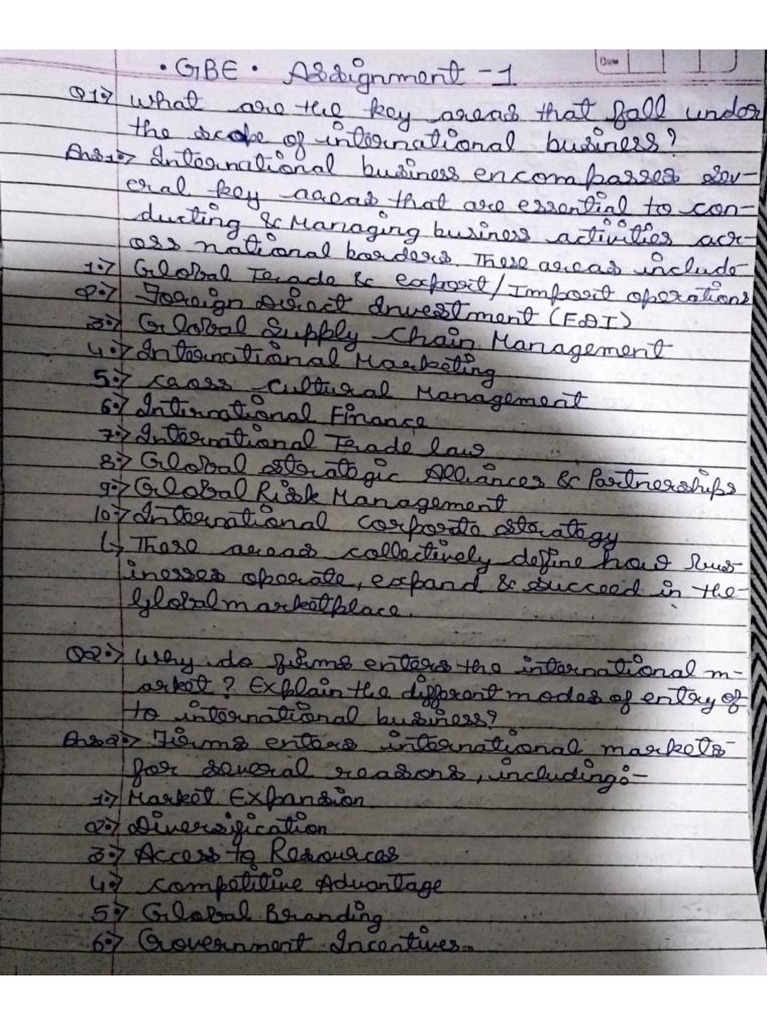 • GBE • Assignment -1
Date
Q1:> What are the key areas that fall under
the scope of international business?
Ans1:> International business encompasses sev-
eral key areas that are essential to con-
ducting & Managing business activities acr-
oss national borders. These areas include-
1:> Global Trade & export/Import operations
2:> Foreign Direct Investment (FDI)
3:> Global Supply Chain Management
4:> International Marketing
5:> Cross Cultural Management
6:> International Finance
7:> International Trade law
8:> Global Strategic Alliances & Partnerships
9:> Global Risk Management
10:> International Corporate Strategy
↳ These areas collectively define how bus-
inesses operate, expand & succeed in the-
Global marketplace.
Q2:> Why do firms enters the international m-
arket? Explain the different modes of entry of
to international business?
Ans2:> Firms enters international markets-
for several reasons, including:-
1:> Market Expansion
2:> Diversification
3:> Access to Resources
4:> Competitive Advantage
5:> Global Branding
6:> Government Incentives.